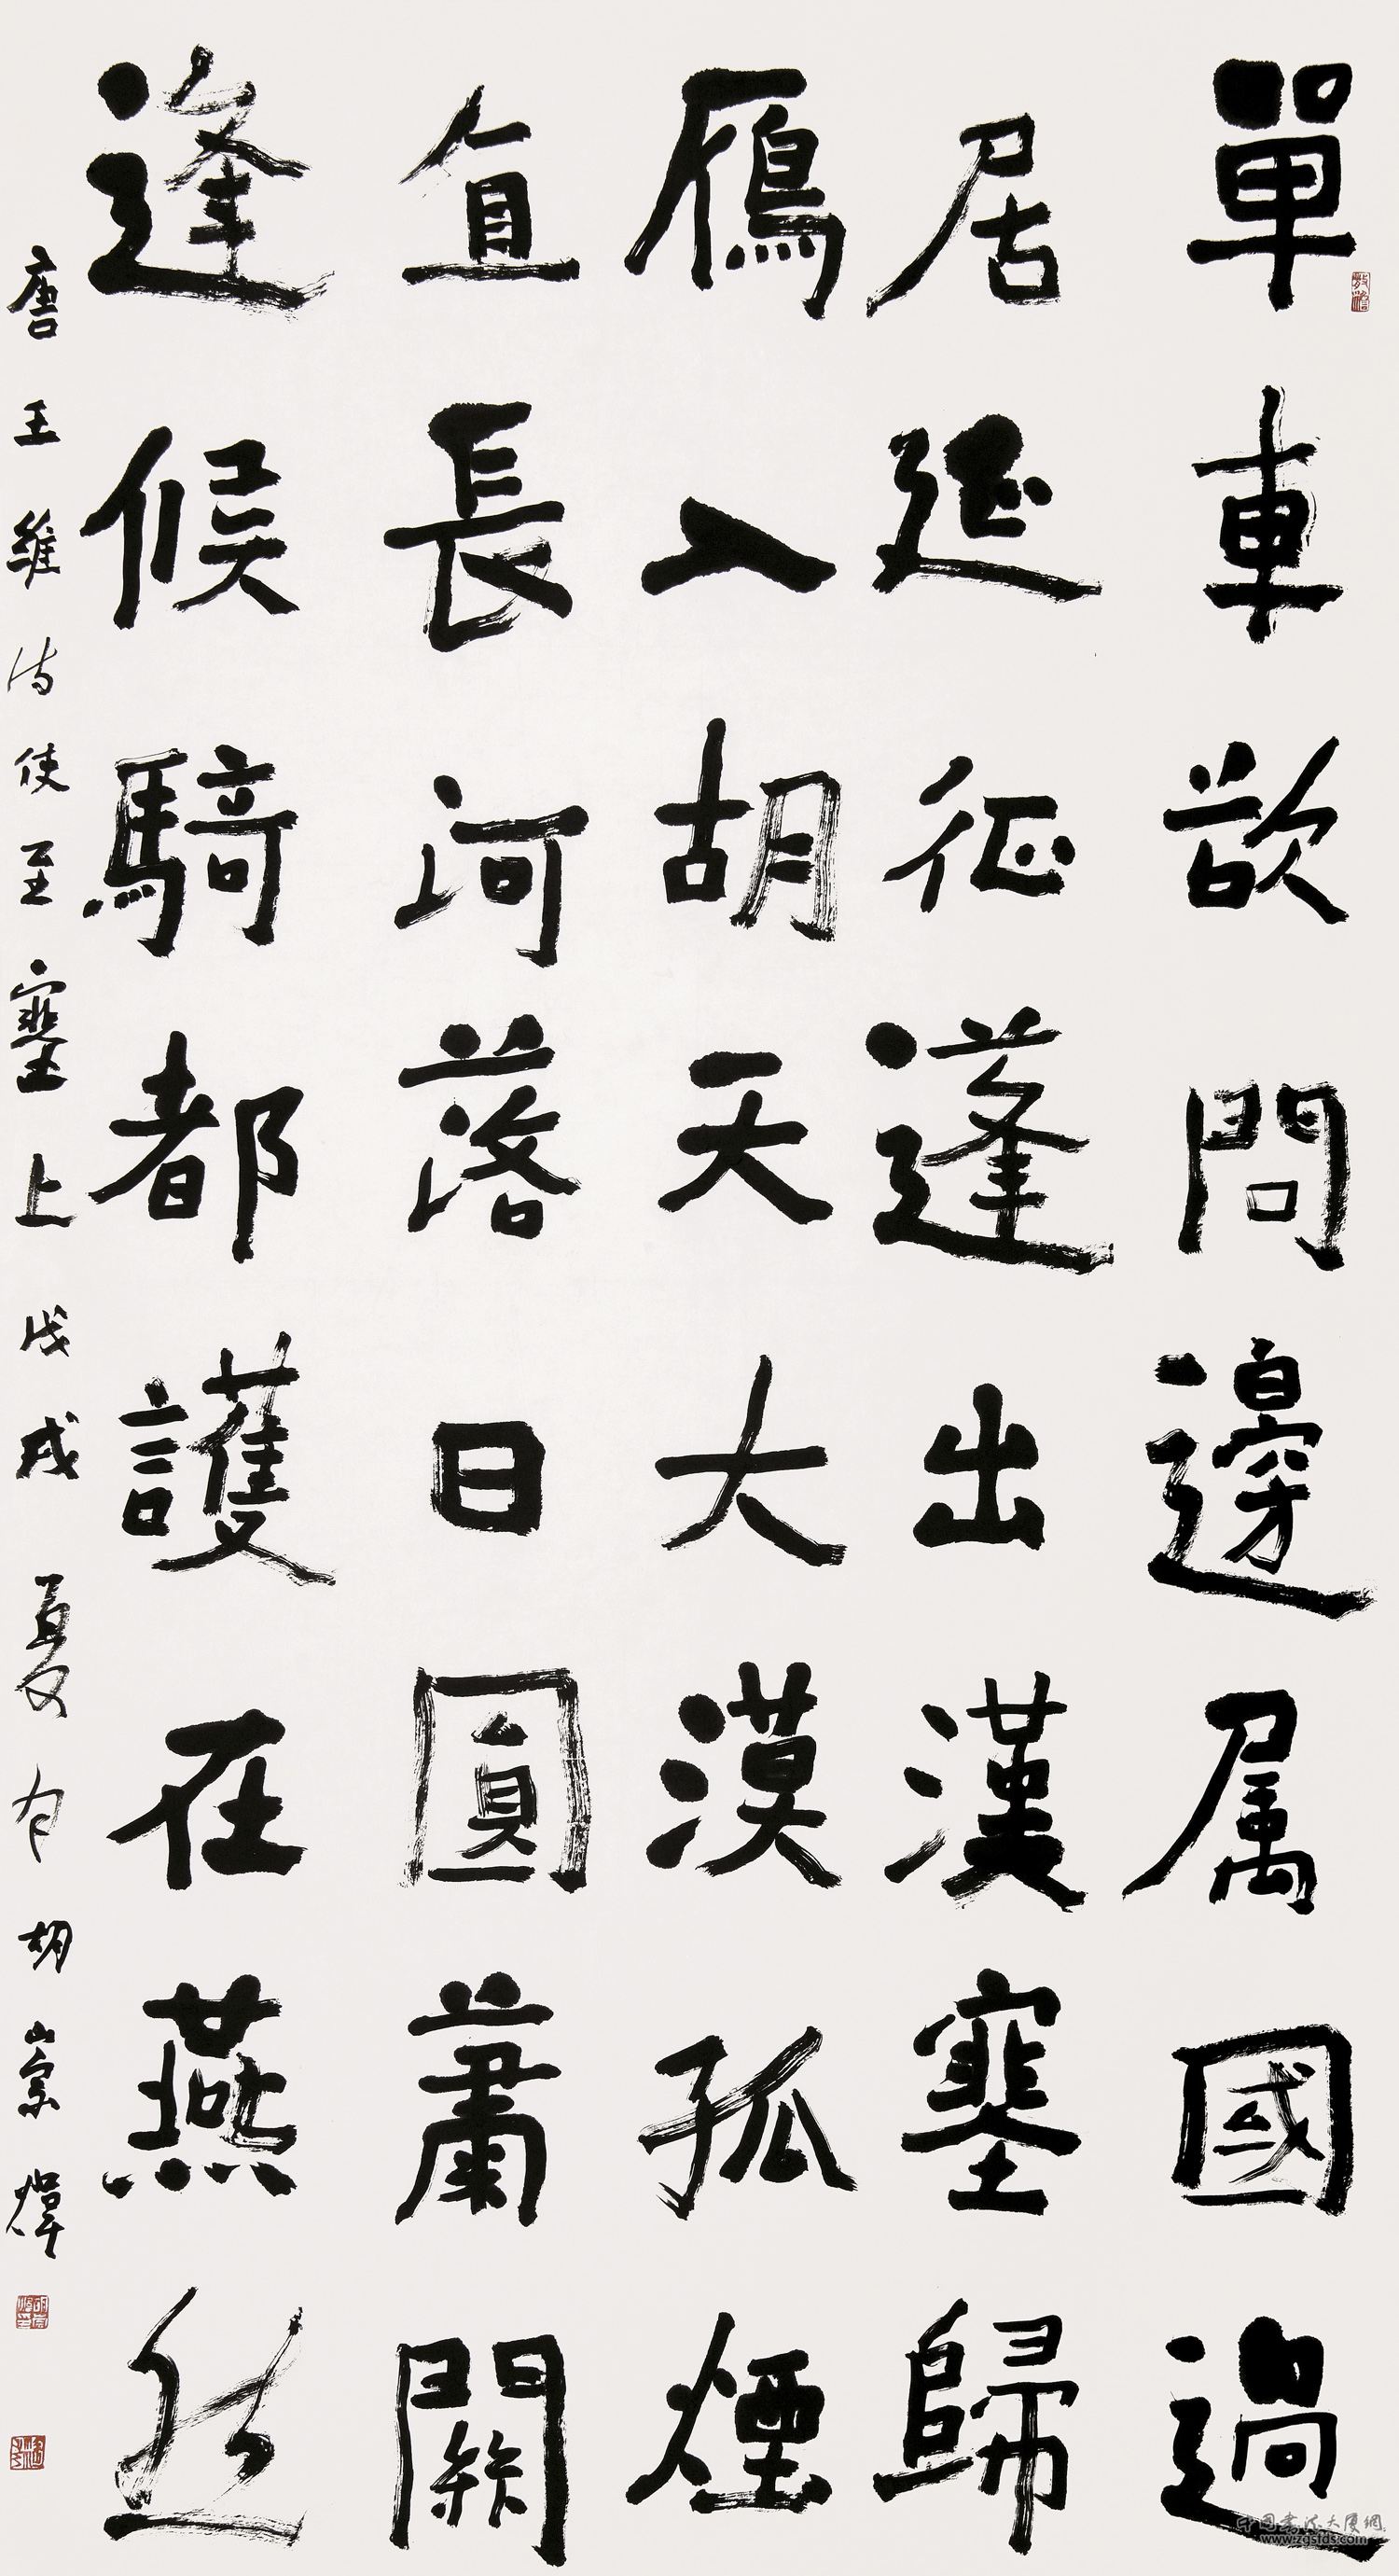 單車欲問邊屬國過
居延征蓬出漢塞歸
鴈入胡天大漠孤煙
直長河落日圓蕭關
逢候騎都護在燕然
唐王維詩使至塞上戊戌夏月胡崇煒
中国书法大厦網
www.zgsfds.com